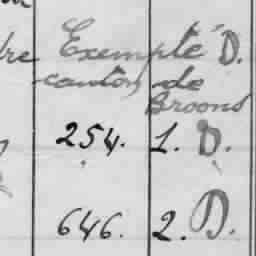 Exempté D.
canton de
Broons
254. 1. D.
646. 2. D.